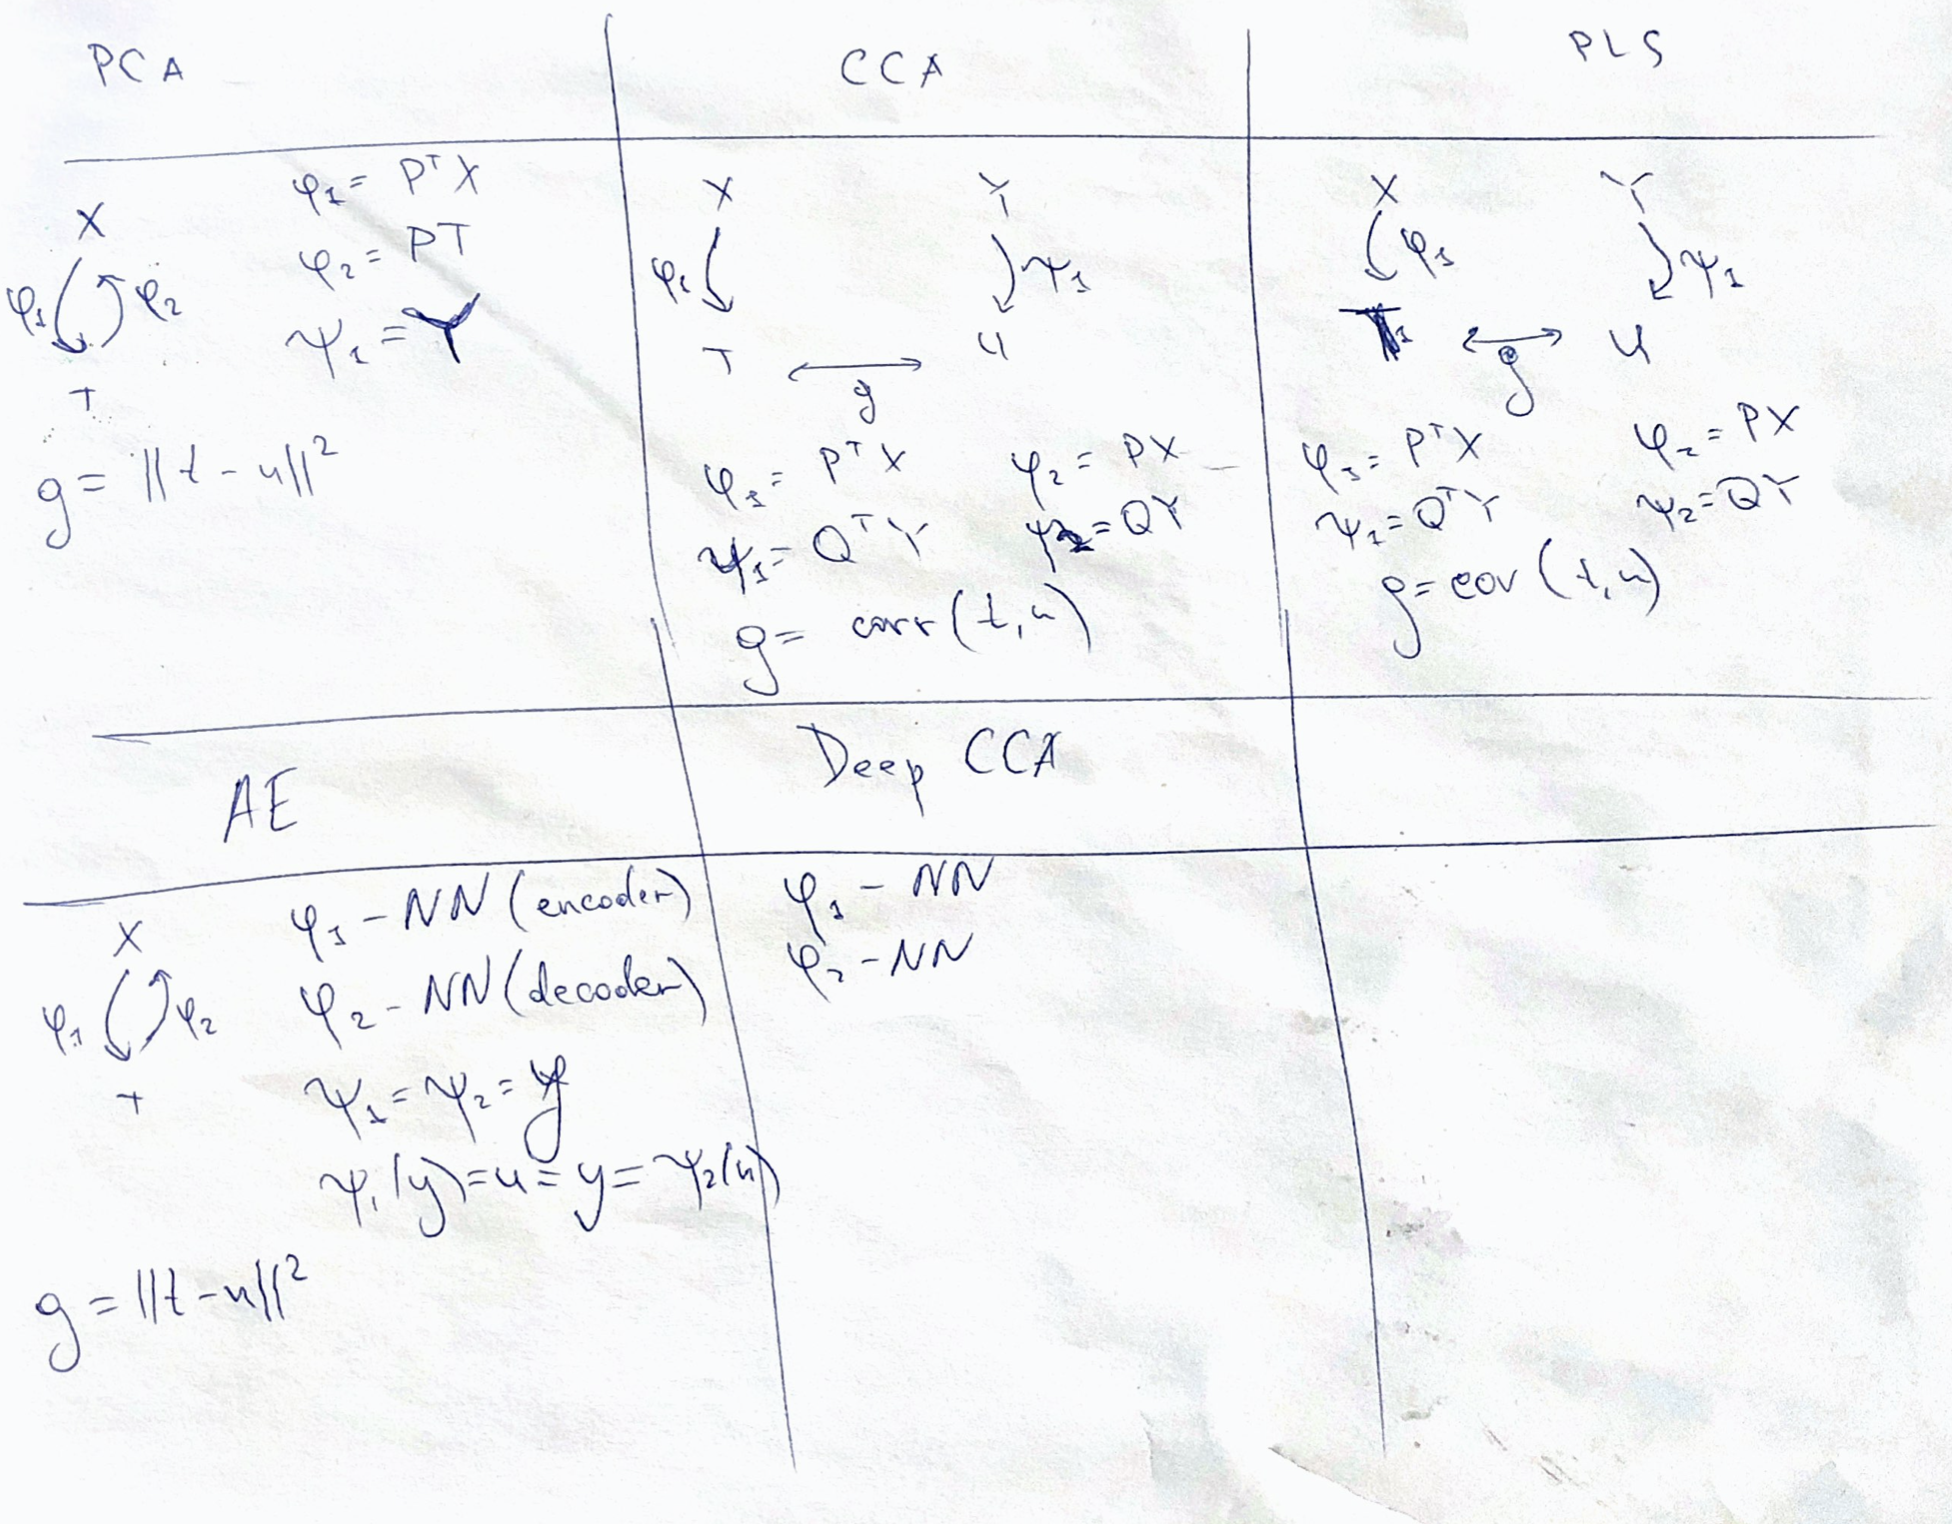 PCA
CCA
PLS
X
φ₁ = PᵀX
φ₂ = PT
φ₁ φ₂
ψ₁ = Y
T
g = ||t - u||²
X Y
φ₁ ψ₁
T U
g
φ₁ = PᵀX φ₂ = PX
ψ₁ = QᵀY ψ₂ = QY
g = corr(t, u)
X Y
φ₁ ψ₁
T U
g
φ₁ = PᵀX φ₂ = PX
ψ₁ = QᵀY ψ₂ = QY
g = cov(t, u)
AE
Deep CCA
X
φ₁ - NN (encoder)
φ₂ - NN (decoder)
φ₁ φ₂
T
ψ₁ = ψ₂ = y
ψ₁(y) = u = y = ψ₂(u)
g = ||t - u||²
φ₁ - NN
φ₂ - NN